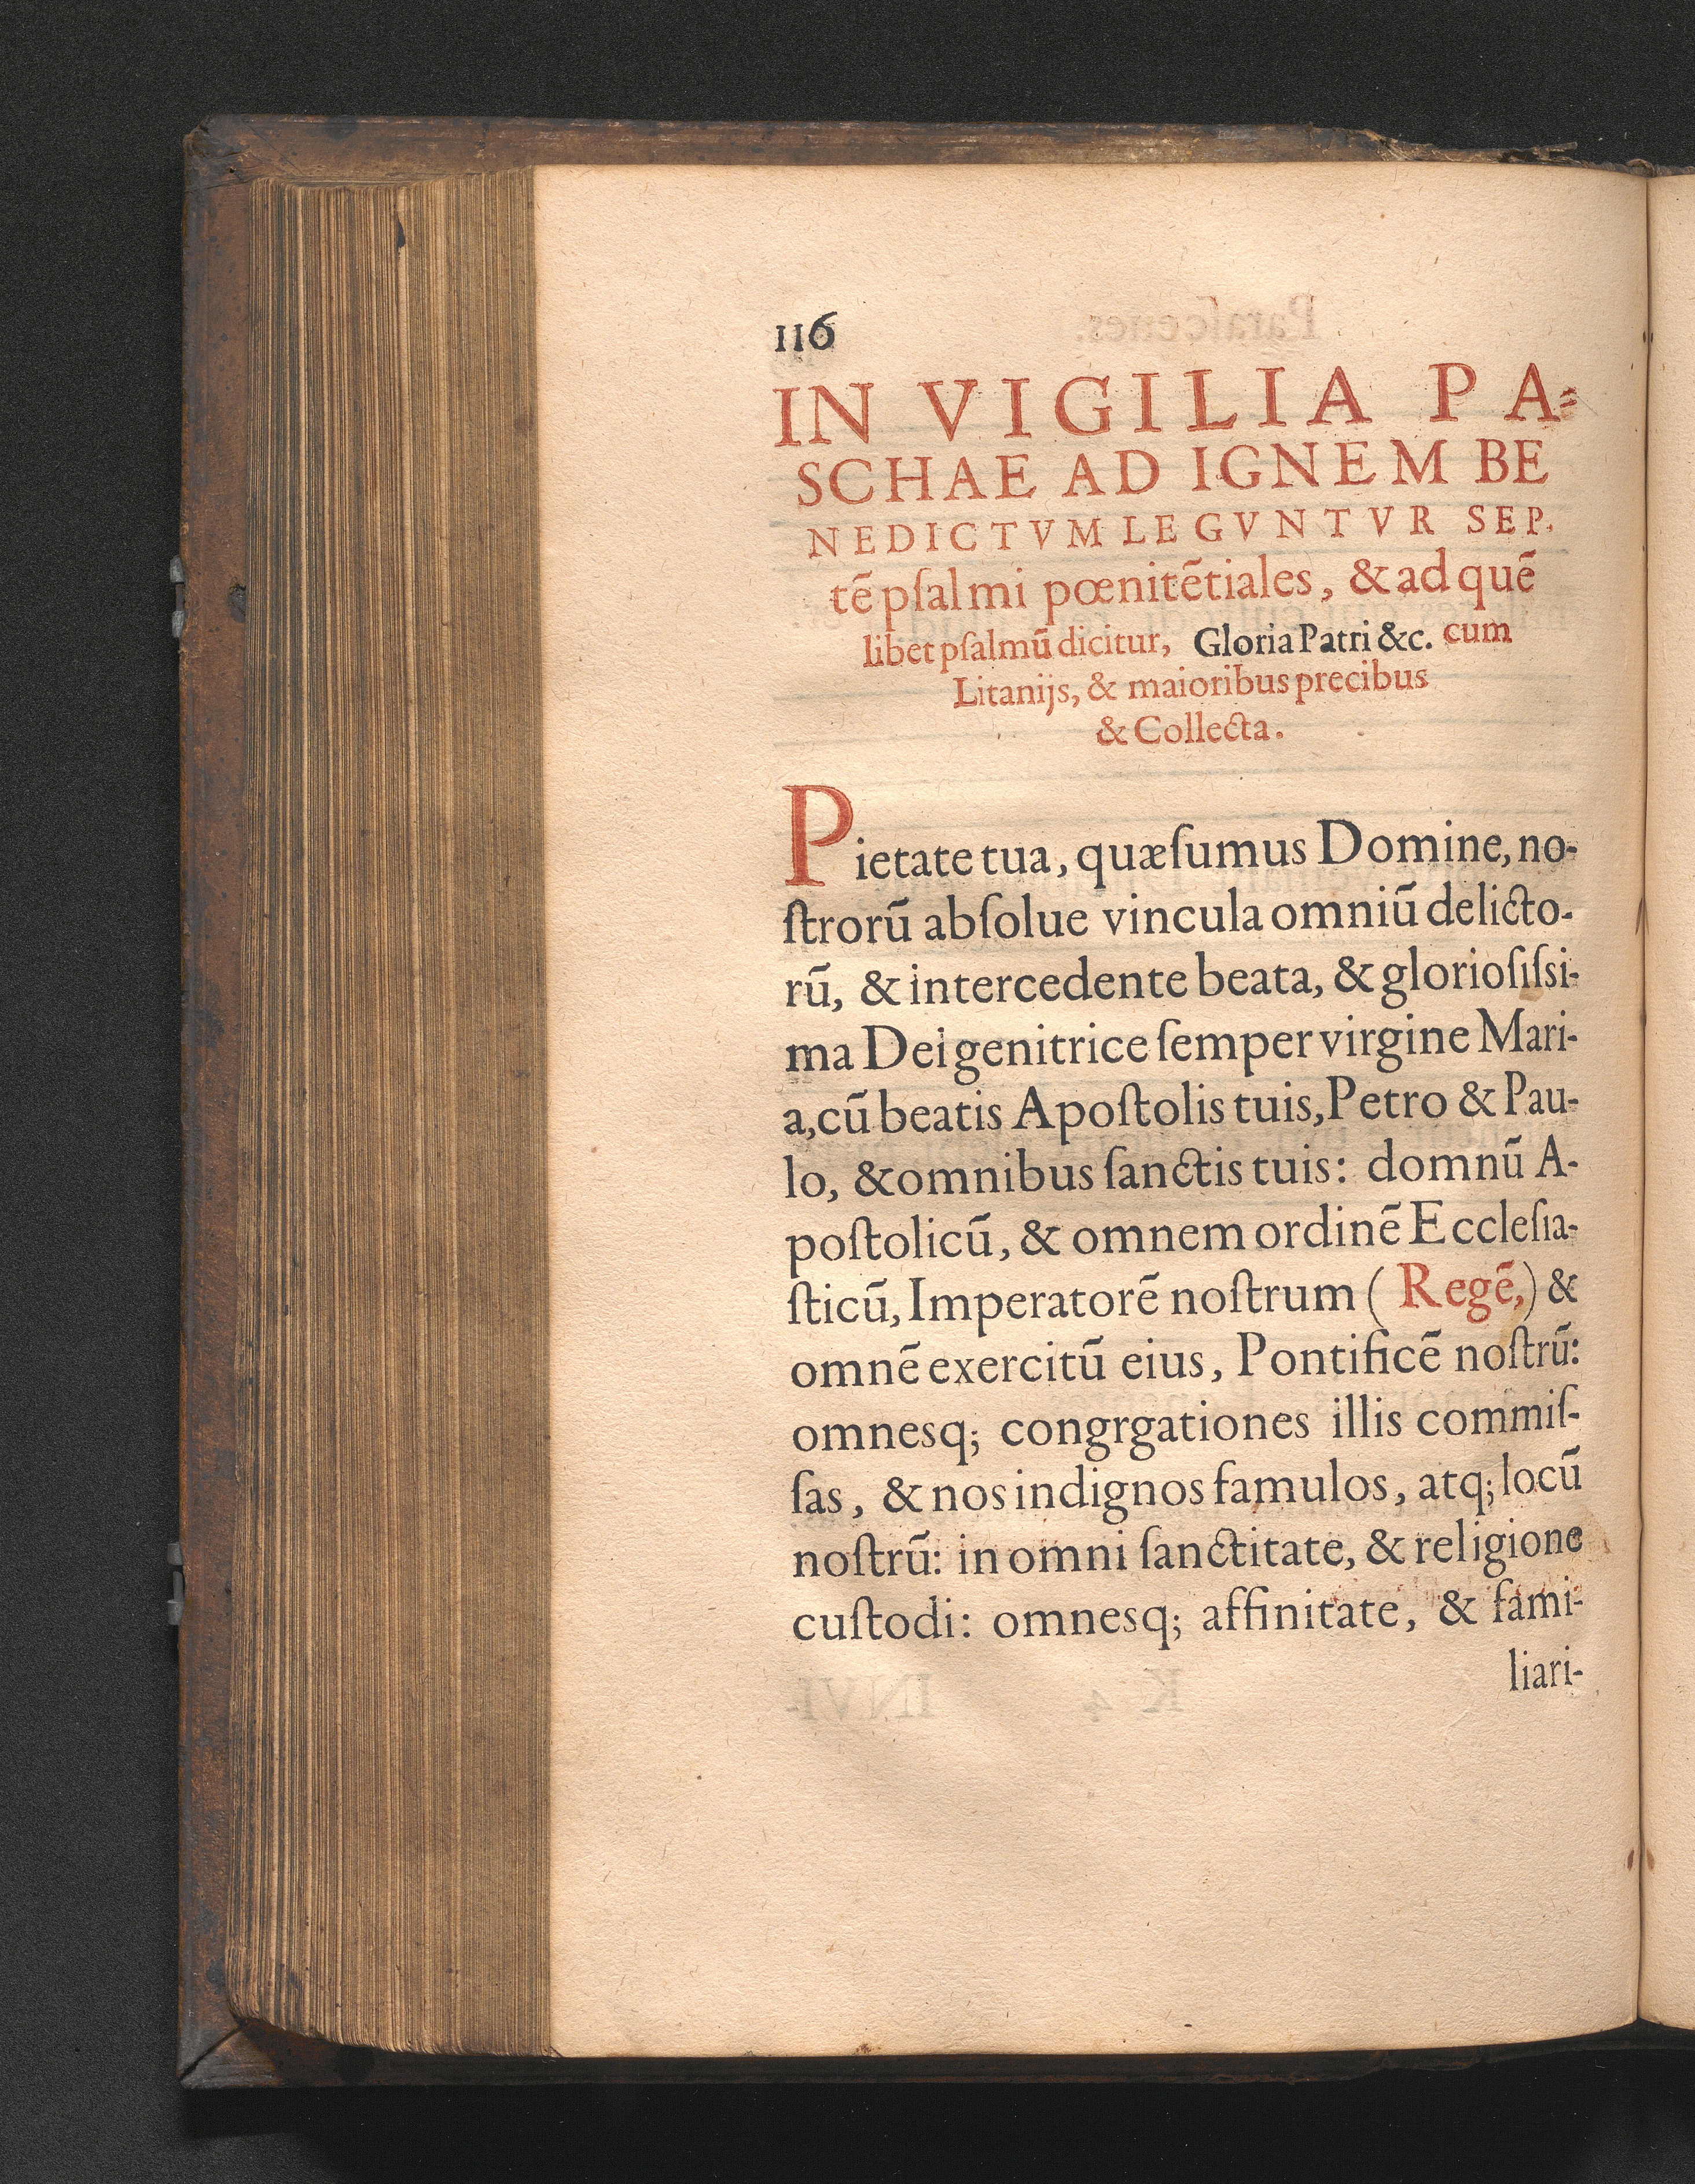 116
IN VIGILIA PA-
SCHAE AD IGNEM BE
NEDICTVM LEGVNTVR SEP.
tē pſalmi pœnitētiales, & ad quē
libet pſalmū dicitur, Gloria Patri &c. cum
Litanijs, & maioribus precibus
& Collecta.
Pietate tua, quæſumus Domine, no-
ſtrorū abſolue vincula omniū delicto-
rū, & intercedente beata, & glorioſiſsi-
ma Dei genitrice ſemper virgine Mari-
a, cū beatis Apoſtolis tuis, Petro & Pau-
lo, & omnibus ſanctis tuis: domnū A-
poſtolicū, & omnem ordinē Eccleſia-
ſticū, Imperatorē noſtrum ( Regē,) &
omnē exercitū eius, Pontificē noſtrū:
omnesq; congrgationes illis commiſ-
ſas, & nos indignos famulos, atq; locū
noſtrū: in omni ſanctitate, & religione
cuſtodi: omnesq; affinitate, & fami-
liari-